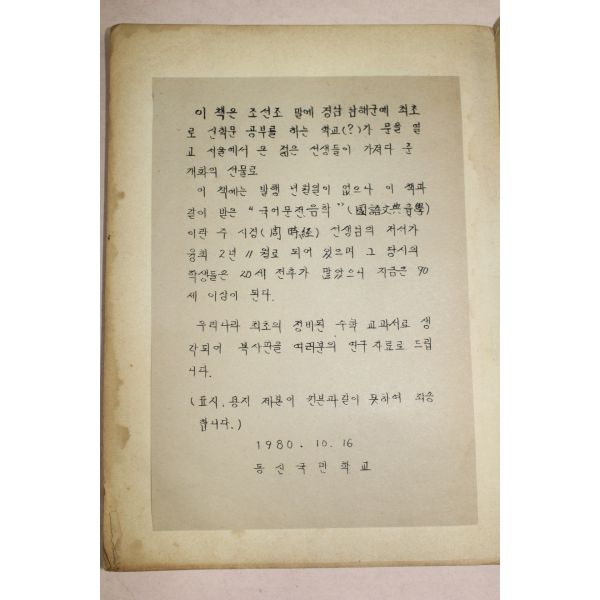 이 책은 조선조 말에 경남 남해군에 최초
로 신학문 공부를 하는 학교(?)가 문을 열
고 서울에서 온 젊은 선생들이 가져다 준
개화의 선물로
이 책에는 발행 년월일이 없으나 이 책과
같이 받은 "국어문전음학"(國語文典音學)
이란 주 시경(周時經) 선생님의 저서가
융희 2년 11월로 되어 있으며 그 당시의
학생들은 20세 전후가 많았으니 지금은 90
세 이상이 된다.
우리나라 최초의 정비된 수학 교과서로 생
각되어 복사판을 여러분의 연구 자료로 드립
니다.
(표지, 용지 제본이 원본과같이 못하여 죄송
합니다.)
1980. 10. 16
동신국민학교